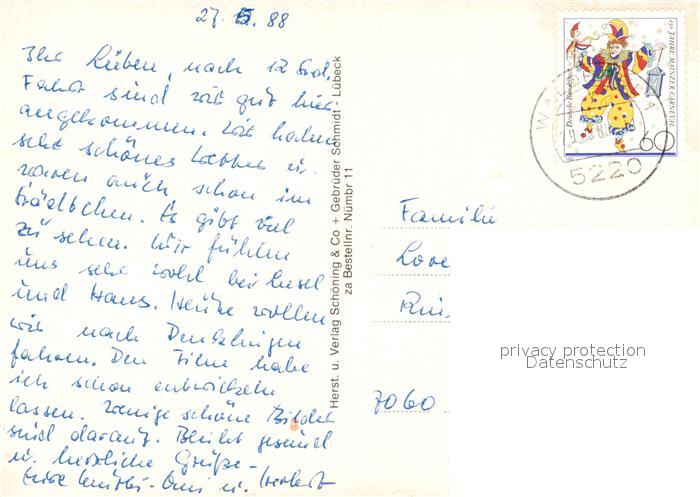 27. 5. 88
Ihr Lieben, nach 12 Std.
Fahrt sind wir gut hier
angekommen. Wir haben
sehr schönes Wetter u.
waren auch schon im
Städtchen. Es gibt viel
zu sehen. Wir fühlen
uns sehr wohl bei Liesel
und Hans. Heute wollen
wir nach Denklingen
fahren. Den Film habe
ich schon entwickeln
lassen. Wenige schöne Bilder
sind darauf. Bleibt gesund
u. herzliche Grüße -
Eure Mutti - Omi u. Herbert
Herst. u. Verlag Schöning & Co + Gebrüder Schmidt - Lübeck
za Bestellnr. Nümbr 11
150 JAHRE MAINZER CARNEVAL
Deutsche Bundespost
60
5220
Familie
7060
privacy protection
Datenschutz